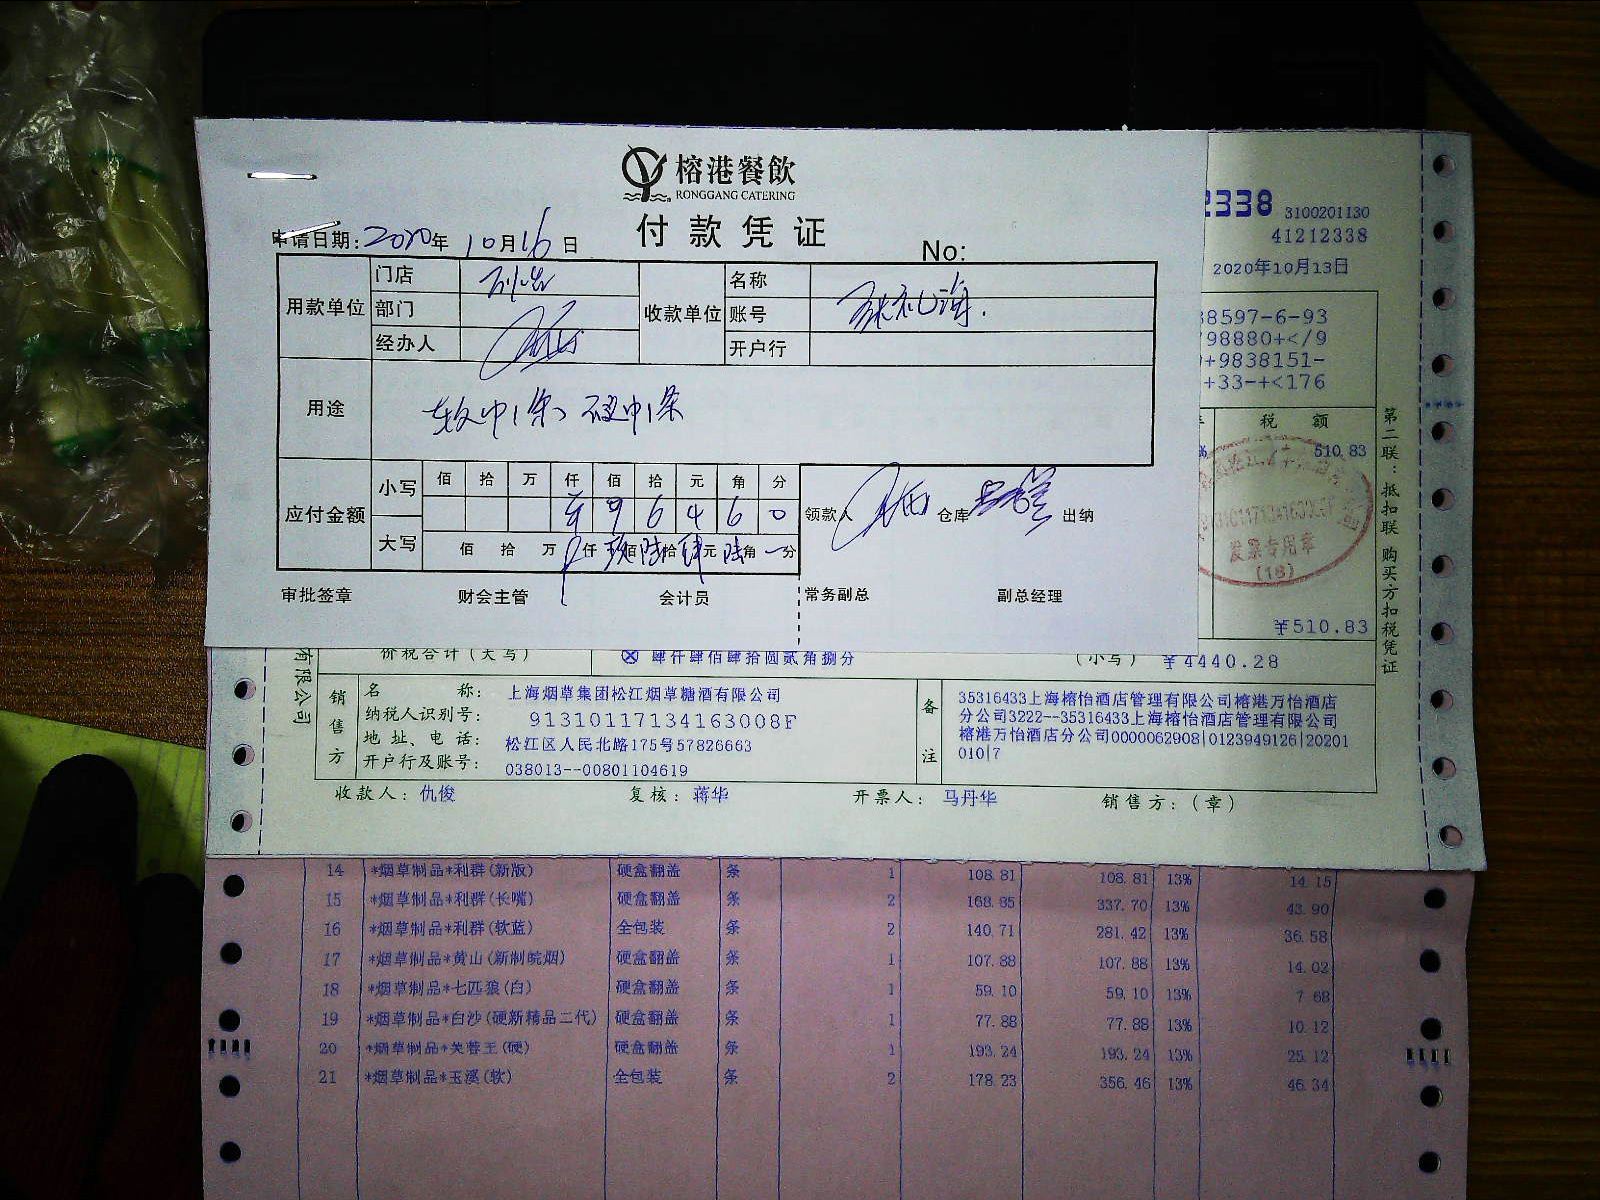 榕港餐飲
RONGGANG CATERING
付款凭证
申请日期:2020年10月16日
No:
用款单位
门店
部门
经办人
收款单位
名称
账号
开户行
用途
软中1条、硬中1条
应付金额
小写
佰 拾 万 仟 佰 拾 元 角 分
¥ 9 6 4 6 0
大写
佰 拾 万 仟 玖佰陆拾肆元陆角 分
领款人 仓库 出纳
审批签章 财会主管 会计员 常务副总 副总经理
2338 3100201130
41212338
2020年10月13日
38597-6-93
98880+</9
+9838151-
+33-+<176
税 额
510.83
发票专用章
(18)
¥510.83
第二联:抵扣联 购买方扣税凭证
有限公司
价税合计(大写) ⊗ 肆仟肆佰肆拾圆贰角捌分 (小写) ¥4440.28
销售方
名 称: 上海烟草集团松江烟草糖酒有限公司
纳税人识别号: 91310117134163008F
地 址、电 话: 松江区人民北路175号57826663
开户行及账号: 038013--00801104619
备注
35316433上海榕怡酒店管理有限公司榕港万怡酒店
分公司3222--35316433上海榕怡酒店管理有限公司
榕港万怡酒店分公司0000062908|0123949126|20201
010|7
收款人: 仇俊 复核: 蒋华 开票人: 马丹华 销售方:(章)
14 *烟草制品*利群(新版) 硬盒翻盖 条 1 108.81 108.81 13% 14.15
15 *烟草制品*利群(长嘴) 硬盒翻盖 条 2 168.85 337.70 13% 43.90
16 *烟草制品*利群(软蓝) 全包装 条 2 140.71 281.42 13% 36.58
17 *烟草制品*黄山(新制皖烟) 硬盒翻盖 条 1 107.88 107.88 13% 14.02
18 *烟草制品*七匹狼(白) 硬盒翻盖 条 1 59.10 59.10 13% 7.68
19 *烟草制品*白沙(硬新精品二代) 硬盒翻盖 条 1 77.88 77.88 13% 10.12
20 *烟草制品*芙蓉王(硬) 硬盒翻盖 条 1 193.24 193.24 13% 25.12
21 *烟草制品*玉溪(软) 全包装 条 2 178.23 356.46 13% 46.34